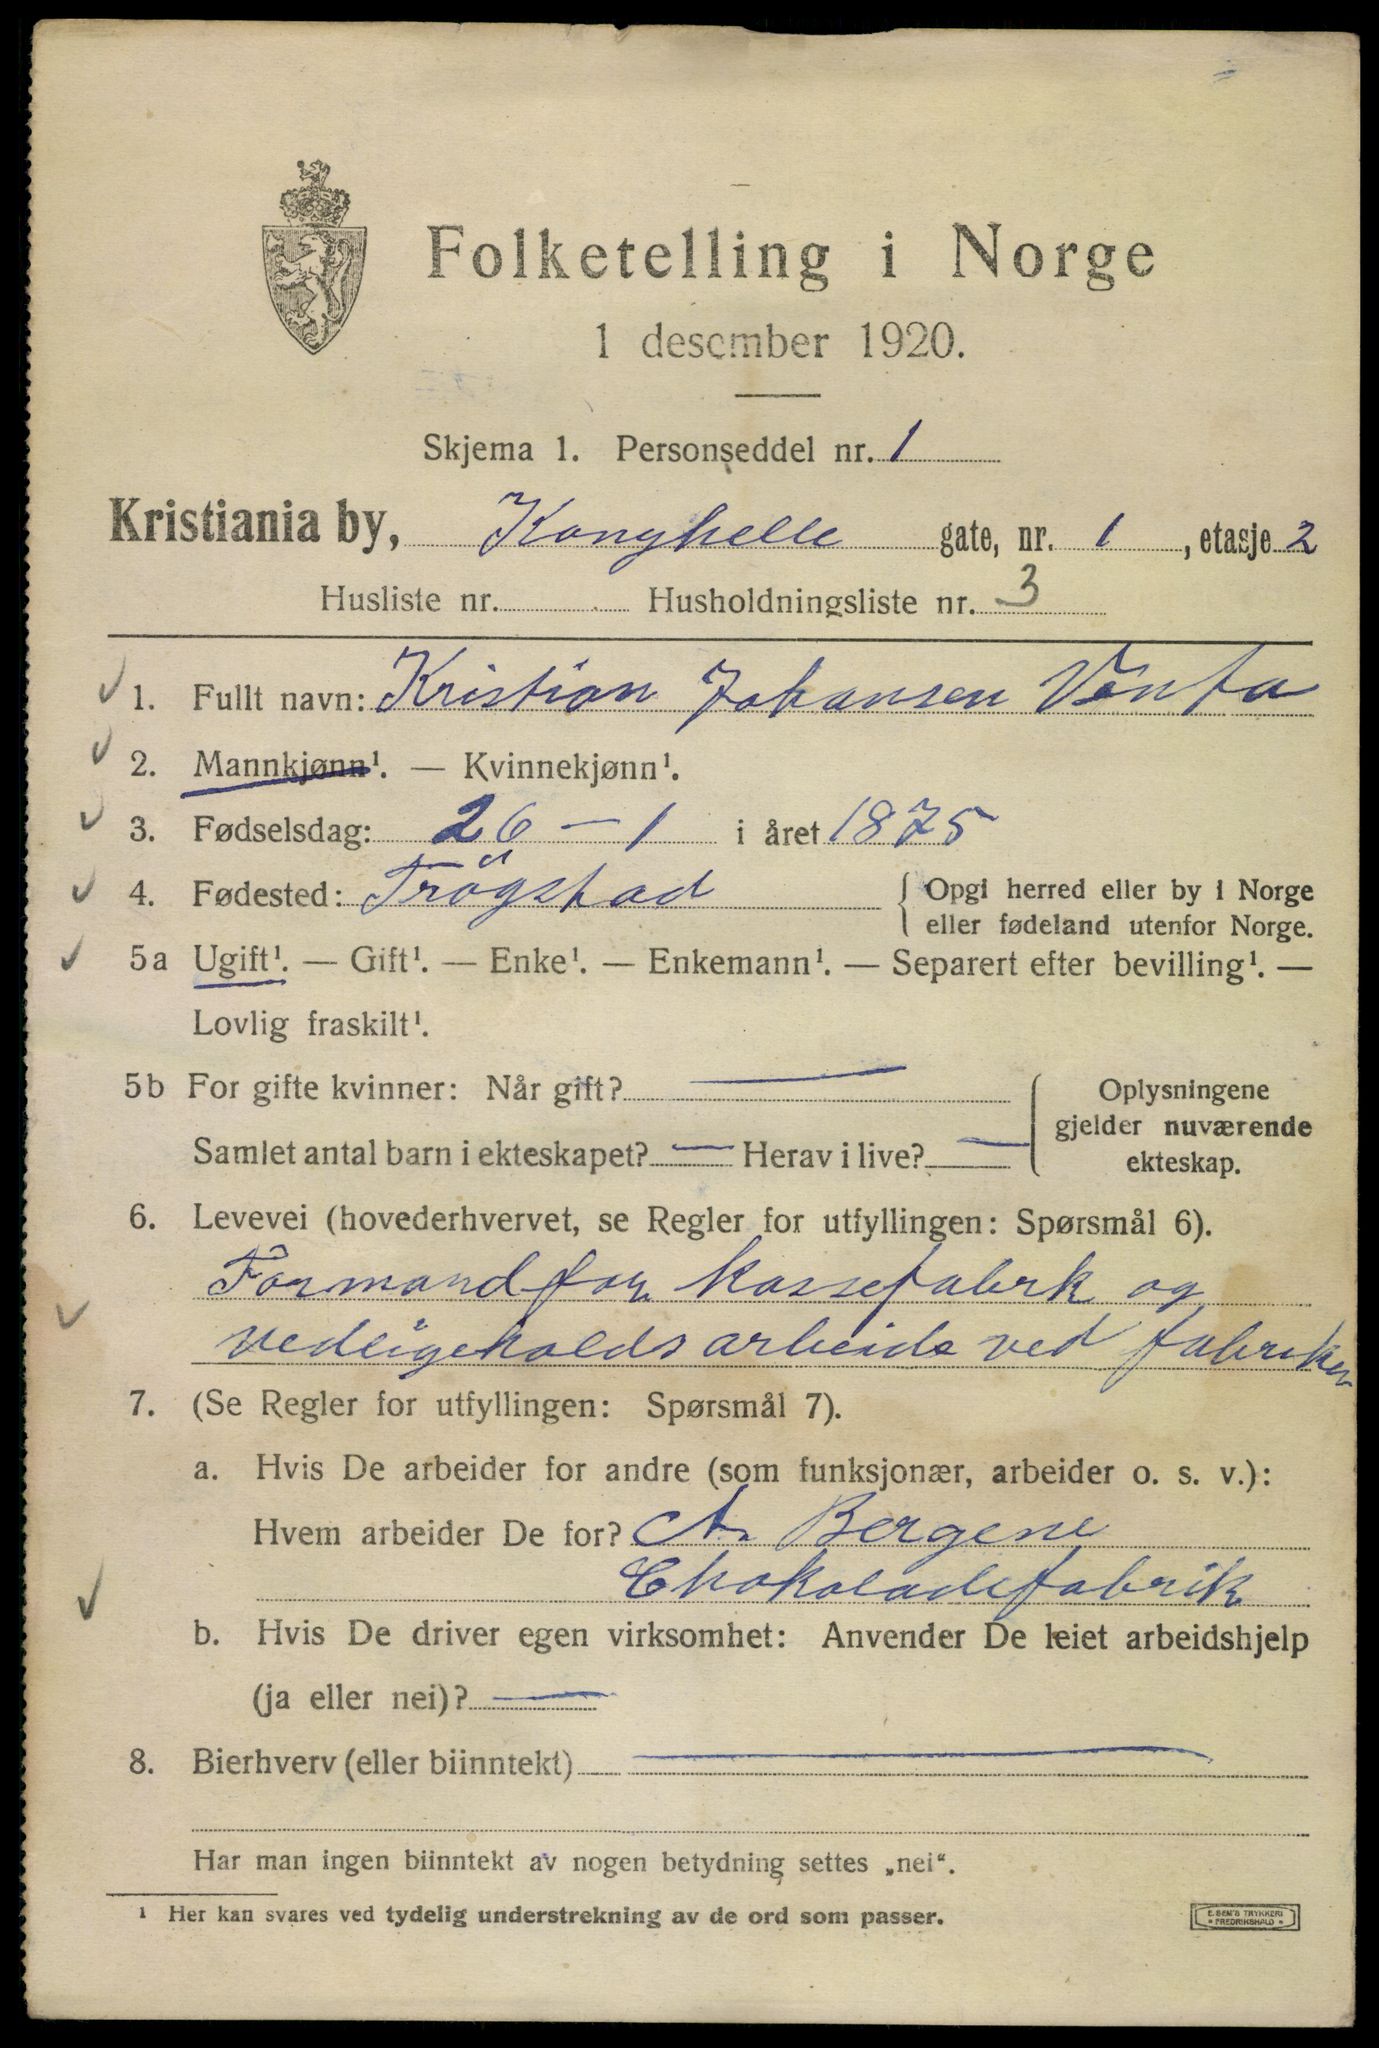 Folketelling i Norge
1 desember 1920.
Skjema 1. Personseddel nr. 1
Kristiania by, Konghelle gate, nr. 1, etasje 2
Husliste nr. Husholdningsliste nr. 3
1. Fullt navn: Kristian Johansen
2. Mannkjønn¹. — Kvinnekjønn¹.
3. Fødselsdag: 26 – 1 i året 1875
4. Fødested: Trögstad { Opgi herred eller by i Norge
eller fødeland utenfor Norge.
5a Ugift¹. — Gift¹. — Enke¹. — Enkemann¹. — Separert efter bevilling¹. —
Lovlig fraskilt¹.
5b For gifte kvinner: Når gift? —
Samlet antal barn i ekteskapet? — Herav i live? —
{ Oplysningene
gjelder nuværende
ekteskap.
6. Levevei (hovederhvervet, se Regler for utfyllingen: Spørsmål 6).
Formand for kassefabrk og
vedligeholds arbeide ved fabriken
7. (Se Regler for utfyllingen: Spørsmål 7).
a. Hvis De arbeider for andre (som funksjonær, arbeider o. s. v.):
Hvem arbeider De for? A. Bergene
Chokoladefabrik
b. Hvis De driver egen virksomhet: Anvender De leiet arbeidshjelp
(ja eller nei)? —
8. Bierhverv (eller biinntekt) —
Har man ingen biinntekt av nogen betydning settes „nei“.
¹ Her kan svares ved tydelig understrekning av de ord som passer.
E. SEM'S TRYKKERI
* FREDRIKSHALD *